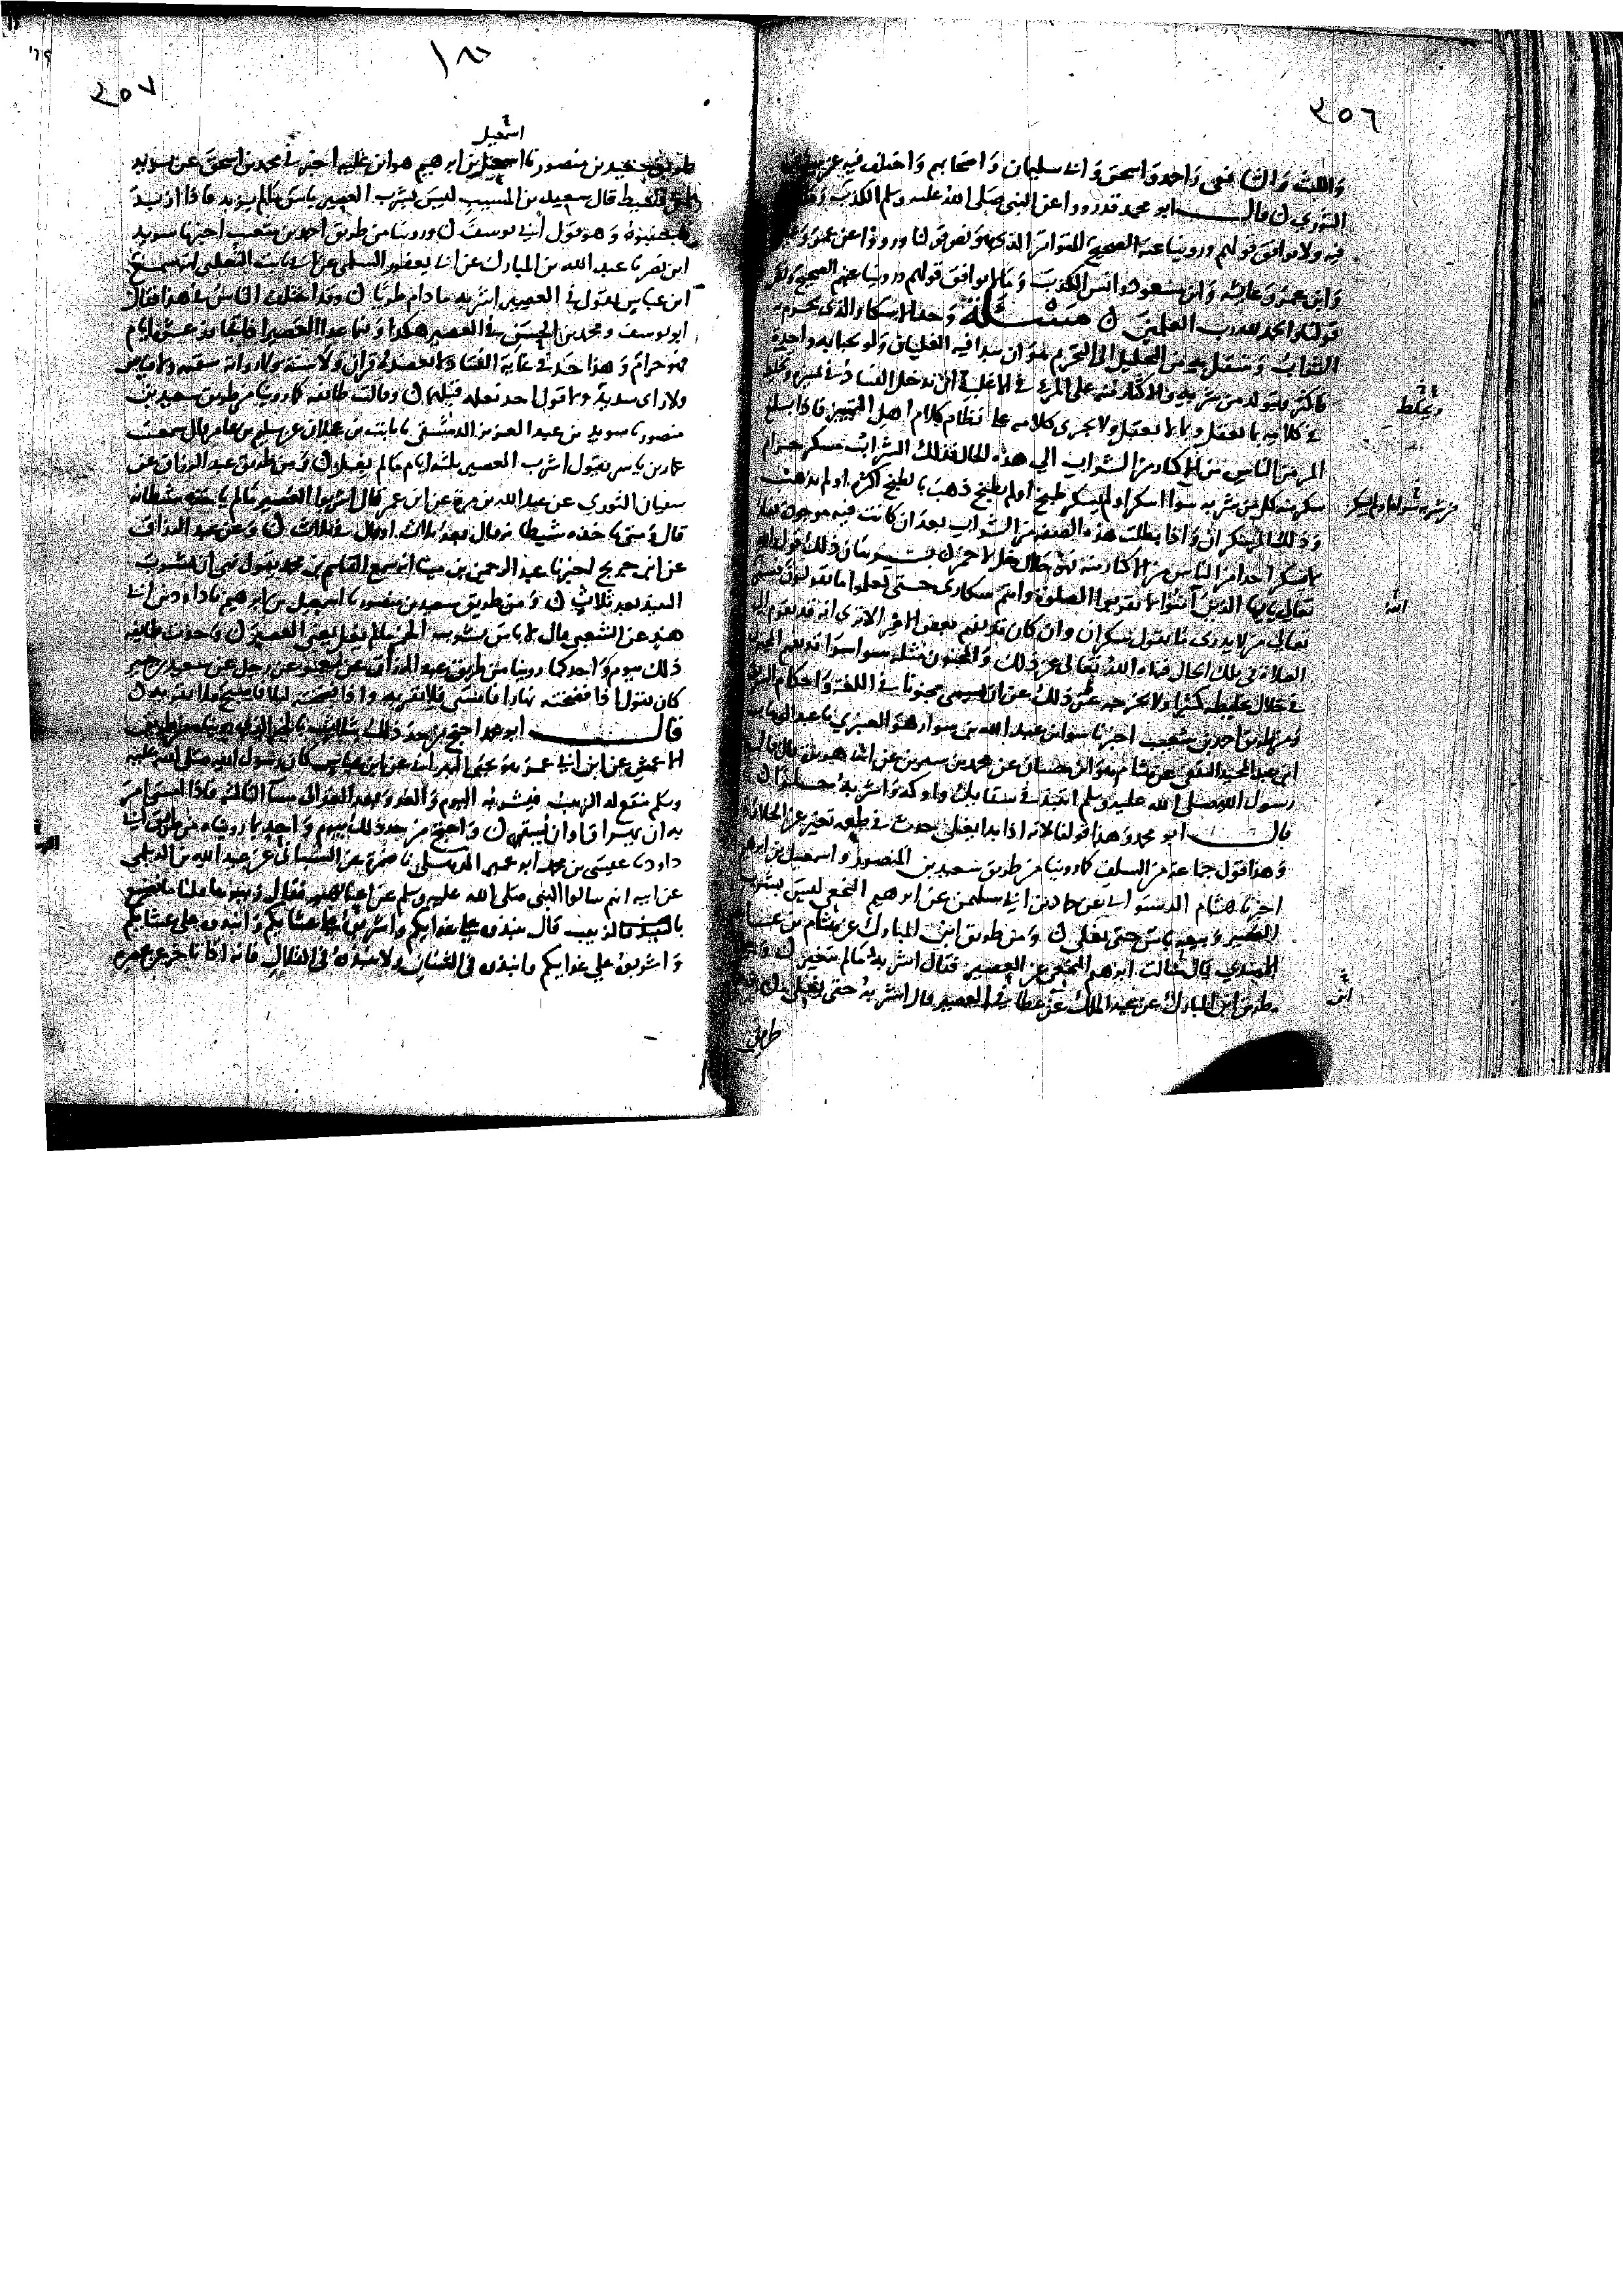 ٢٥٦
والليث والشافعي واحمد واسحق وابي سليمان واصحابهم واختلف فيه عن سفين
الثوري قال ابو محمد قد رووا عن النبي صلى الله عليه وسلم الكذب
فيه ولا يوافق قولهم وروينا عنه الصحيح المتواتر الذي هو نص قولنا ورووا عن عمر
وابن عمر وعايشه وابن مسعود وانس الكذب وما لا يوافق قولهم وروينا عنهم الصحيح
قولنا والحمد لله رب العلمين مسئلة وحد الاسكار الذي يحرم به
الشراب وينتقل به من التحليل الى التحريم هو ان يبدا فيه الغليان ولو بحبابه واحدة
فاكثر ويتولد من شربه والاكثار منه على المرء في الاغلب ان يدخل الفساد في تمييزه ويخلط
في كلامه بما يعقل وبما لا يعقل ولا يجري كلامه على نظام كلام اهل التمييز فاذا بلغ
المرء من الناس من الاكثار من الشراب الى هذه الحال فذلك الشراب مسكر حرام
سكر منه كل من شربه سوا اسكر او لم يسكر طبخ او لم يطبخ ذهب بالطبخ اكثره او لم يذهب
وذلك المرء سكران واذا بطلت هذه الصفة من الشراب بعد ان كانت فيه موجودة
لم يسكر احد من الناس من الاكثار منه فهو حلال خل لا خمر برهان ذلك قول الله
تعالى يايها الذين آمنوا لا تقربوا الصلوة وانتم سكارى حتى تعلموا ما تقولون
تعالى من لا يدري ما يقول سكران وان كان قد يفهم بعض الامر الا ترى انه قد يقوم الى
الصلاة في تلك الحال فنهاه الله تعالى عن ذلك والمجنون مثله سوا سوا قد يفهم المجنون
في خلال تخليطه كثيرا ولا يخرجه ذلك عن ان يسمى مجنونا في اللغة واحكام
ومن طريق احمد بن شعيب اخبرنا سوار بن عبد الله بن سوار هو العنبري نا عبد الوهاب
ابن عبد المجيد الثقفي عن هشام هو ابن حسان عن محمد بن سيرين عن ابي هريرة قال قال
رسول الله صلى الله عليه وسلم انتبذ في سقايك واوكه واشربه حلوا
قال ابو محمد وهذا قولنا لانه اذا بدا يغلي حدث في طعمه تغير عن الحلاوة
وهذا قول جماعة من السلف كما روينا من طريق سعيد بن المنصور نا اسمعيل بن ابراهيم
اخبرنا هشام الدستوائي عن حماد بن ابي سليمن عن ابرهيم النخعي ليس بشرب
العصير وبيعه باس حتى يغلي ومن طريق ابن المبارك عن هشام بن عايذ
الاسدي قال سالت ابرهيم النخعي عن العصير فقال اشربه ما لم يتغير
طريق ابن المبارك عن عبد الملك عن عطا في العصير قال اشربه حتى يغلي
طريق
ويخلط
من شربه سوا
الله
ابن
٢٥٧
١٨٥
اسمعيل
طريق سعيد بن منصور نا اسمعيل بن ابرهيم هو ابن علية اخبرني محمد بن اسحق عن يزيد
بن قسيط قال سعيد بن المسيب ليس بشرب العصير باس ما لم يزبد فاذا ازبد
فاجتنبوه وهو قول ابي يوسف وروينا من طريق احمد بن شعيب اخبرنا سويد
ابن نصر نا عبد الله بن المبارك عن ابي يعفور السلمي عن ابي ثابت الثعلبي انه سمع
ابن عباس يقول في العصير اشربه ما دام طريا وقد اختلف الناس في هذا فقال
ابو يوسف ومحمد بن الحسن في العصير هكذا وفيما عدا العصير اذا تجاوز عشرة ايام
فهو حرام وهذا حد في غاية الفساد لا يعضده قرآن ولا سنة ولا رواية سقيمة ولا قياس
ولا راي سديد ولا قول احد نعلمه قبلهما وقالت طائفة كما روينا من طريق سعيد بن
منصور نا سويد بن عبد العزيز الدمشقي نا ثابت بن عجلان عن سليم بن عامر قال سمعت
عمار بن ياسر يقول اشرب العصير ثلثة ايام ما لم يغل ومن طريق عبد الرزاق عن
سفيان الثوري عن عبد الله بن مرة عن ابن عمر قال اشربوا العصير ما لم ياخذه شيطانه
قال ومتى ياخذه شيطانه قال بعد ثلاث او قال في ثلاث وعن عبد الرزاق
عن ابن جريج اخبرنا عبد الرحمن بن مينا انه سمع القاسم بن محمد يقول نهى ان يشرب
النبيذ بعد ثلاث ومن طريق سعيد بن منصور نا اسمعيل بن ابرهيم نا داود بن ابي
هند عن الشعبي قال لا باس بشربه ما لم يغل يعني العصير وحدت طائفة
ذلك بيوم واحد كما روينا من طريق عبد الرزاق عن رجل عن سعيد بن جبير
كان يقول اذا فضخته نهارا فامسى فلا تقربه واذا فضخته ليلا فاصبح فلا تقربه
قال ابو محمد احتج من حد ذلك بثلاث بالخبر الذي روينا من طريق
الاعمش عن ابن ابي عمر هو يحيى البهراني عن ابن عباس كان رسول الله صلى الله عليه
وسلم ينقع له الزبيب فيشربه اليوم والغد وبعد الغد الى مسا الثالثة فاذا امسى امر
به ان يهراق او ان يسقى واحتج من حد ذلك بيوم واحد بما رويناه من طريق ابي
داود نا عيسى بن محمد ابو عمير الرملي نا ضمرة عن السيباني عن عبد الله بن الديلمي
عن ابيه انهم سالوا النبي صلى الله عليه وسلم عن اعنابهم فقال زببوها قلنا ما نصنع
بالزبيب قال انبذوه على غدايكم واشربوه على عشايكم وانبذوه على عشايكم
واشربوه على غدايكم وانبذوه في الشنان ولا تنبذوه في القلال فانه اذا تاخر عن عصره